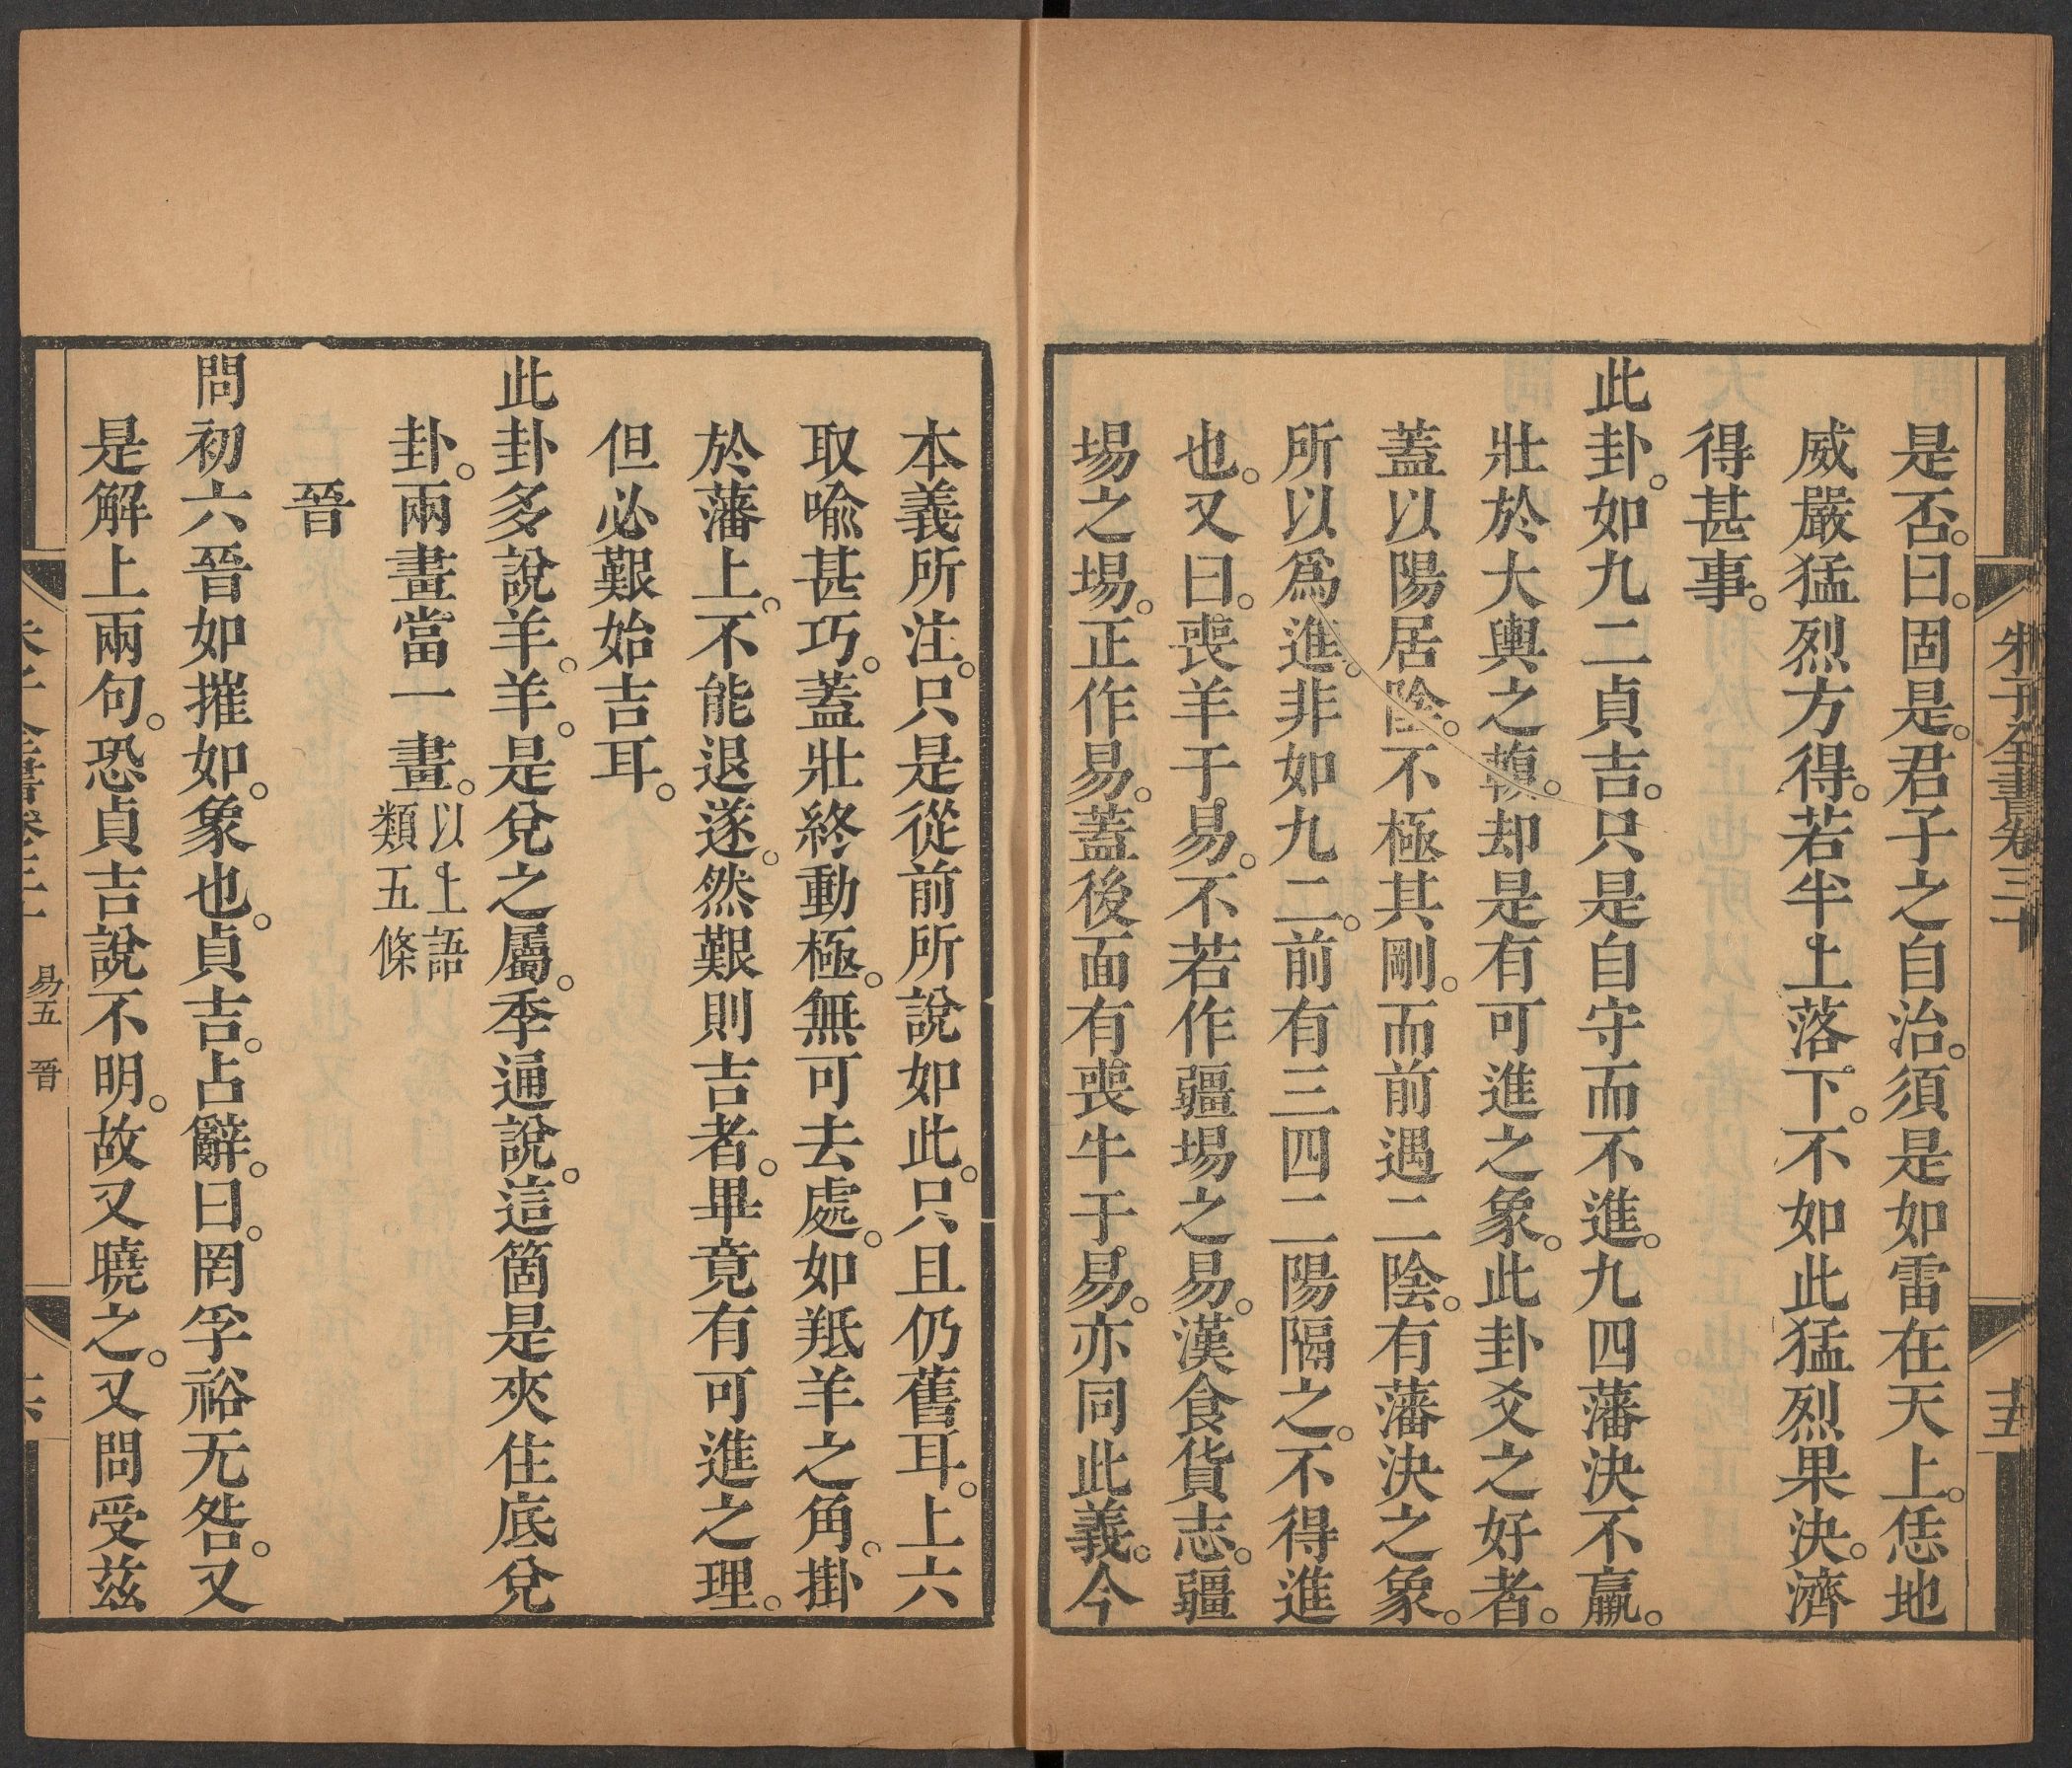 朱子全書卷三十
十五
是否。曰。固是。君子之自治。須是如雷在天上。恁地
威嚴猛烈方得。若半上落下。不如此猛烈果決。濟
得甚事。
此卦。如九二貞吉。只是自守而不進。九四藩決不羸。
壯於大輿之輹。却是有可進之象。此卦爻之好者。
蓋以陽居陰。不極其剛。而前遇二陰。有藩決之象。
所以爲進。非如九二。前有三四二陽隔之。不得進
也。又曰。喪羊于易。不若作疆埸之易。漢食貨志。疆
埸之埸。正作易。蓋後面有喪牛于易。亦同此義。今
本義所注。只是從前所說如此。只且仍舊耳。上六
取喩甚巧。蓋壯終動極。無可去處。如羝羊之角。掛
於藩上。不能退遂。然艱則吉者。畢竟有可進之理。
但必艱始吉耳。
此卦多說羊。羊是兌之屬。季通說。這箇是夾住底兌
卦。兩畫當一畫。以上語類五條
晉
問初六晉如摧如。象也。貞吉。占辭。曰。罔孚裕无咎。又
是解上兩句。恐貞吉說不明。故又曉之。又問受茲
易五 晉